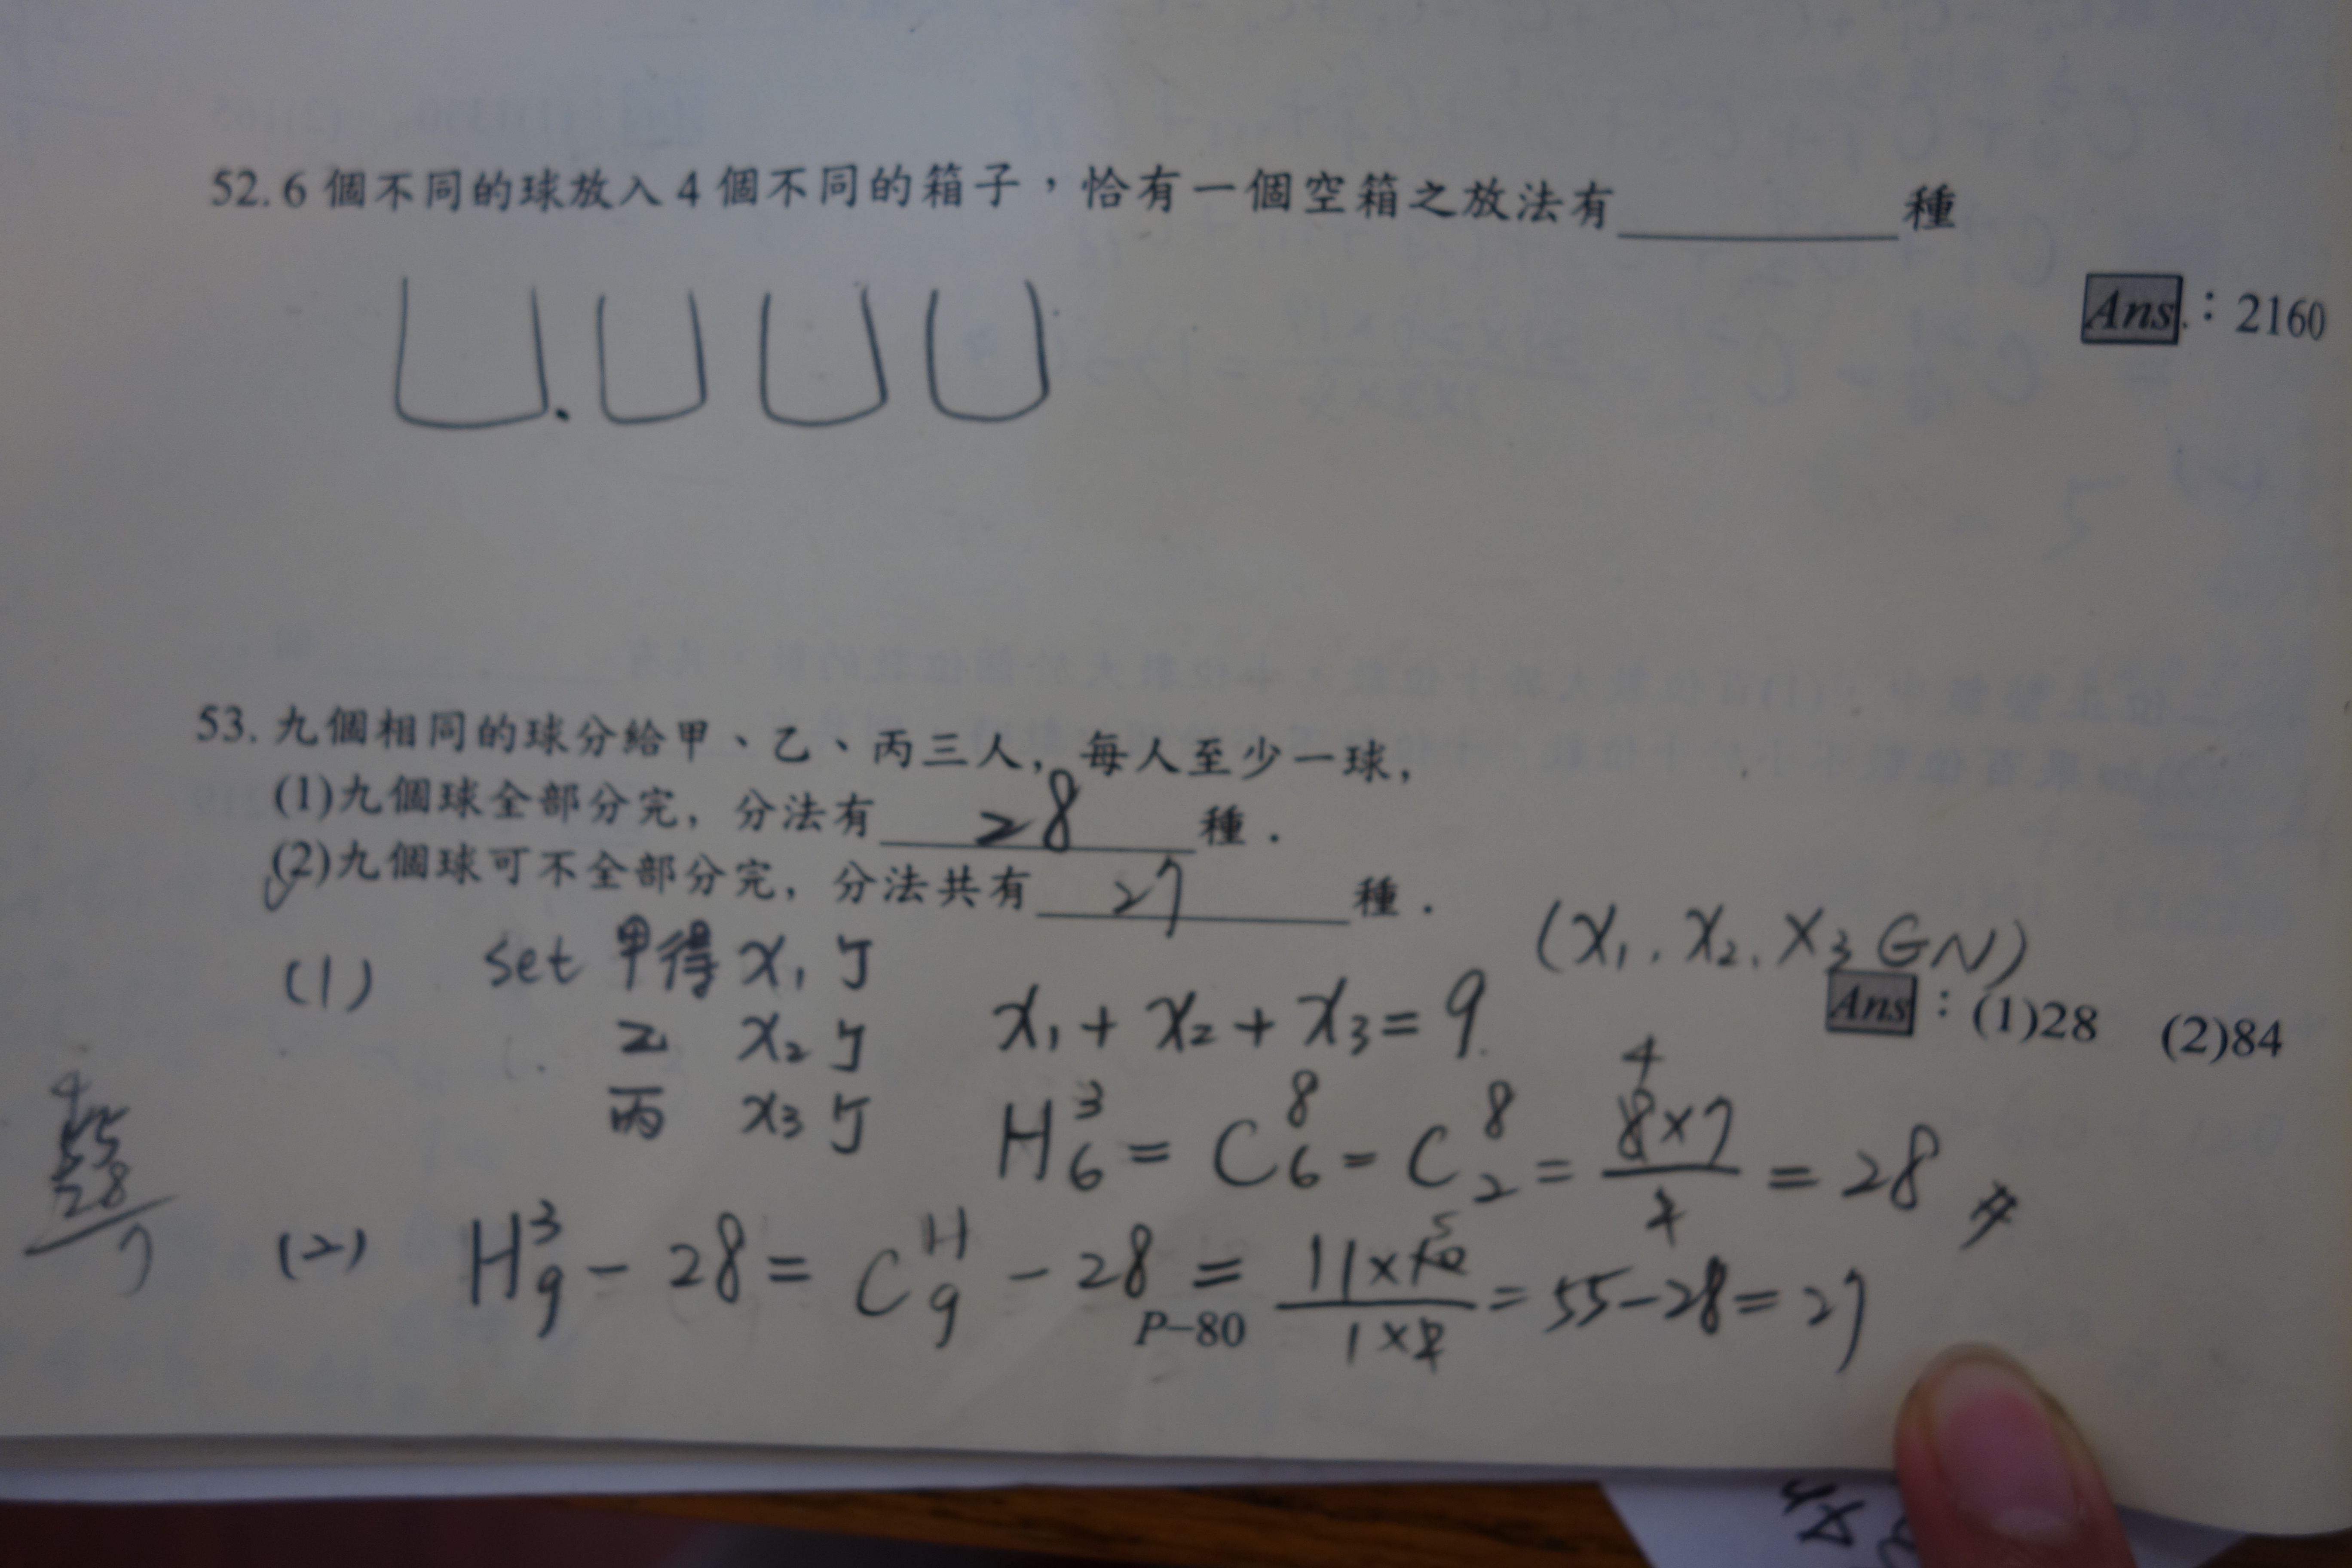 52. 6 個不同的球放入 4 個不同的箱子，恰有一個空箱之放法有________種
Ans.：2160
53. 九個相同的球分給甲、乙、丙三人，每人至少一球，
(1)九個球全部分完，分法有 28 種．
(2)九個球可不全部分完，分法共有 27 種．
(x₁, x₂, x₃ ∈ N)
Ans：(1)28 (2)84
(1) set 甲得 x₁ 球
乙 x₂ 球
丙 x₃ 球
x₁ + x₂ + x₃ = 9
H³₆ = C⁸₆ = C⁸₂ = 8×7/2 = 28
4
55
28
7
(2) H³₉ - 28 = C¹¹₉ - 28 = 11×10/1×2 = 55-28 = 27
P-80